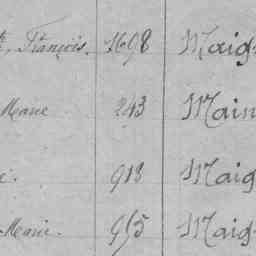 François. 1698 Maig
Marie 243 Main
e. 913 Maig
Marie. 915 Maig